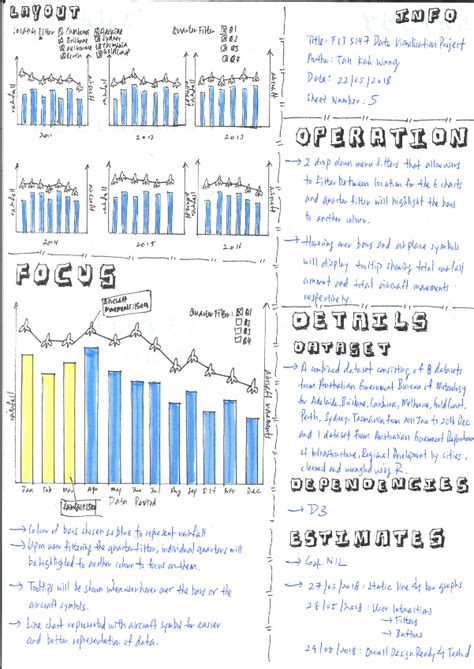 LAYOUT
Location Filter
Canberra
Adelaide
Brisbane
Sydney
Melbourne
Gold Coast
Quarter Filter
Q1
Q2
Q3
Q4
rainfall
aircraft
2011
2012
2013
2014
2015
2016
FOCUS
Aircraft
Movements:
Quarter Filter:
Q1
Q2
Q3
Q4
rainfall
aircraft movements
Jan Feb Mar Apr May Jun Jul Aug Sep Oct Nov Dec
Data Period
→ Colour of bars chosen as blue to represent rainfall
→ Upon user filtering the quarter filter, individual quarters will
be highlighted to another colour to focus on them.
→ Tooltips will be shown when user hover over the bars or the
aircraft symbols.
→ Line chart represented with aircraft symbol for easier
and better representation of data.
INFO
Title: FIT5147 Data Visualisation Project
Author:
Date: 22/05/2018
Sheet Number: 5
OPERATION
→ 2 drop down menu filters that allow users
to filter between location for the 6 charts
and quarter filter will highlight the bars
to another colour.
→ Hovering over bars and airplane symbols
will display tooltip showing total rainfall
amount and total aircraft movements
respectively.
DETAILS
DATASET
→ A combined dataset consisting of 8 datasets
from Australian Government Bureau of Meteorology
for Adelaide, Brisbane, Canberra, Melbourne, Gold Coast,
Perth, Sydney, Tasmania from 2011 Jan to 2016 Dec
and 1 dataset from Australian Government Department
of Infrastructure, Regional Development by cities,
cleaned and wrangled using R.
DEPENDENCIES
→ D3
ESTIMATES
→ Cost NIL
→ 27/05/2018: Static line & bar graphs
28/05/2018: User Interactions
→ Filters
→ Buttons
29/05/2018: Overall Design Ready & Tested